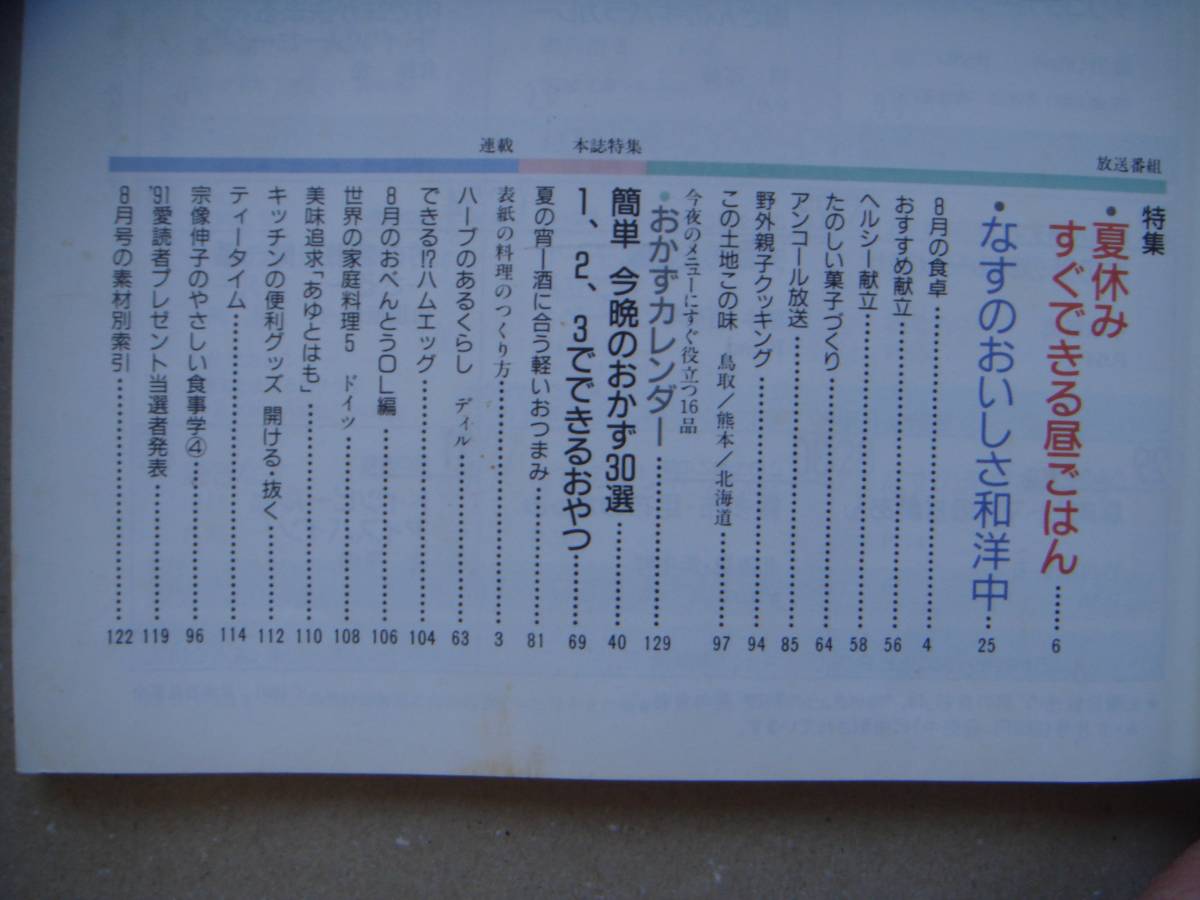 放送番組
特集
・夏休み
すぐできる昼ごはん……6
・なすのおいしさ和洋中…25
8月の食卓……4
おすすめ献立……56
ヘルシー献立……58
たのしい菓子づくり……64
アンコール放送……85
野外親子クッキング……94
この土地この味 鳥取/熊本/北海道……97
今夜のメニューにすぐ役立つ16品
・おかずカレンダー……129
本誌特集
簡単 今晩のおかず30選……40
1、2、3でできるおやつ……69
夏の宵―酒に合う軽いおつまみ……81
表紙の料理のつくり方……3
連載
ハーブのあるくらし ディル……63
できる!?ハムエッグ……104
8月のおべんとうOL編……106
世界の家庭料理5 ドイツ……108
美味追求「あゆとはも」……110
キッチンの便利グッズ 開ける・抜く……112
ティータイム……114
宗像伸子のやさしい食事学④……96
'91愛読者プレゼント当選者発表……119
8月号の素材別索引……122